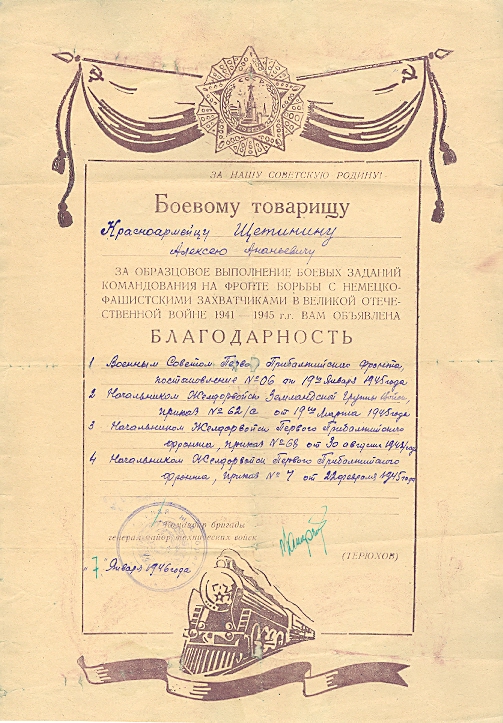 ЗА НАШУ СОВЕТСКУЮ РОДИНУ!
Боевому товарищу
Красноармейцу Щетинину
Алексею Ананьевичу
ЗА ОБРАЗЦОВОЕ ВЫПОЛНЕНИЕ БОЕВЫХ ЗАДАНИЙ
КОМАНДОВАНИЯ НА ФРОНТЕ БОРЬБЫ С НЕМЕЦКО-
ФАШИСТСКИМИ ЗАХВАТЧИКАМИ В ВЕЛИКОЙ ОТЕЧЕ-
СТВЕННОЙ ВОЙНЕ 1941 — 1945 г.г. ВАМ ОБЪЯВЛЕНА
БЛАГОДАРНОСТЬ
1 Военным Советом Первого Прибалтийского фронта,
постановление № 06 от 19го Января 1945 года
2 Начальником Желдорвойск Земландской Группы войск,
приказ № 62/с от 19го Марта 1945 года
3 Начальником Желдорвойск Первого Прибалтийского
фронта, приказ № 68 от 30 августа 1944 год
4 Начальником Желдорвойск Первого Прибалтийского
фронта, приказ № 7 от 22 февраля 1945 года
Командир бригады
генерал-майор технических войск
(ТЕРЮХОВ)
"7" Января 1946 года